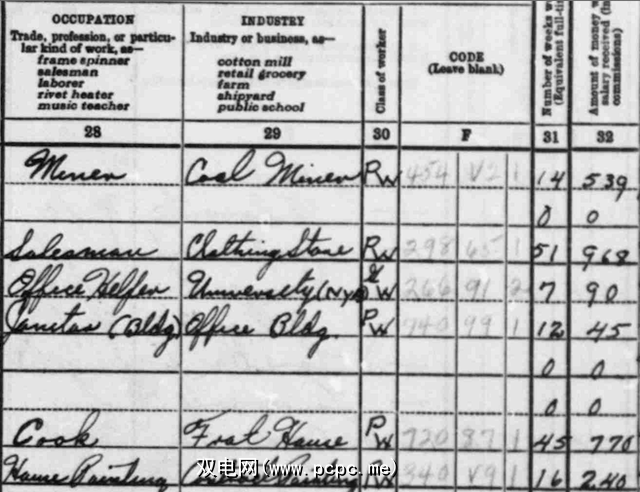 OCCUPATION INDUSTRY
Trade, profession, or particu-
lar kind of work, as—
frame spinner
salesman
laborer
rivet heater
music teacher
Industry or business, as—
cotton mill
retail grocery
farm
shipyard
public school
Class of worker
CODE
(Leave blank)
Number of weeks
(Equivalent full-ti
Amount of money
salary received (in
commissions)
28 29 30 F 31 32
Miner Coal Miner PW 454 V2 1 14 539
0 0
Salesman Clothing Store PW 298 65 1 51 968
Office Helper University (NYA) W 266 91 2 7 90
Janitor (Bldg) Office Bldg. PW 940 99 1 12 45
0 0
0 0
Cook Frat House PW 720 87 1 45 770
House Painting PW 340 V9 1 16 240
双电网(www.pcpc.me)